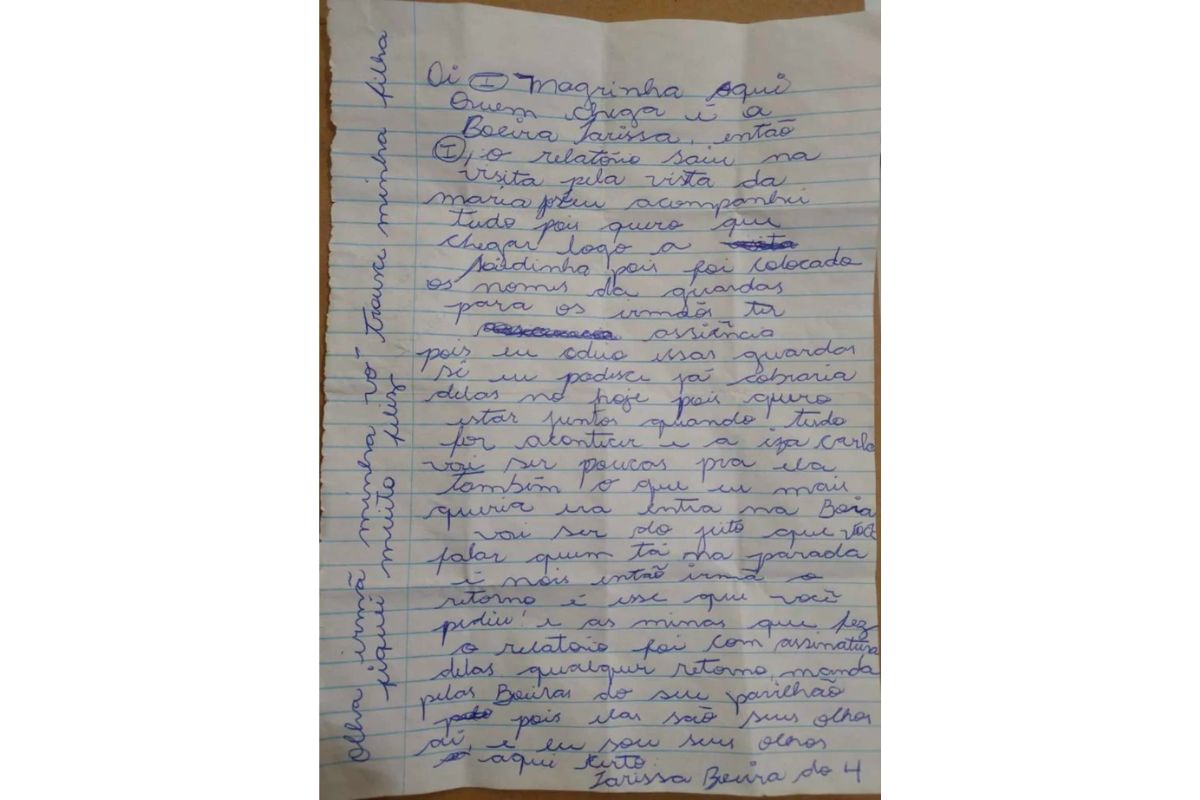 Oi (I) Magrinha Aqui
Quem chega é a
Boeira Larissa, então
(I), o relatório saiu na
visita pela vista da
maria p/eu acompanhei
tudo pois quero que
chegar logo a
saidinha pois foi colocado
os nomes da guardas
para os irmãos ter
assiência
pois eu odeio essas guardas
si eu podesse já cobraria
delas no hoje pois quero
estar juntos quando tudo
for acontecer e a iza Carla
vai ser poucas pra ela
também o que eu mais
queria era entra na Boia
vai ser do jeito que você
falar quem tá na parada
é nois então irmã o
retorno é esse que você
pediu! e as minas que fez
o relatorio foi com assinatura
delas qualquer retorno, manda
pelas Boeiras do seu parilhão
pois elas são seus olhos
aí, e eu sou seus olhos
aqui certo
Larissa Boeira do 4
Olha irmã minha vó trouxe minha filha
fiquei muito feliz